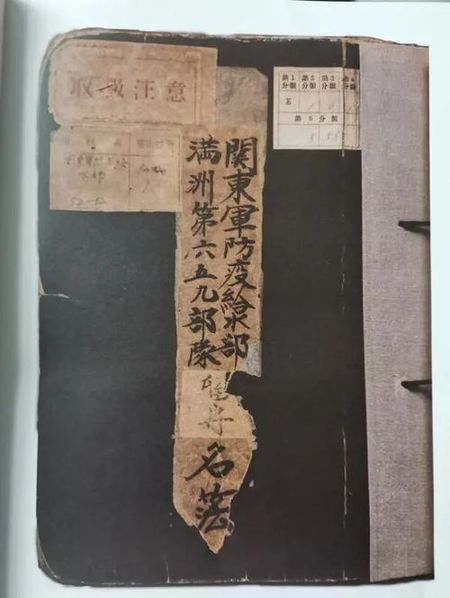 取扱注意
第1分類 第2分類 第3分類
第5分類
関東軍防疫給水部
満洲第六五九部隊
留守
名簿